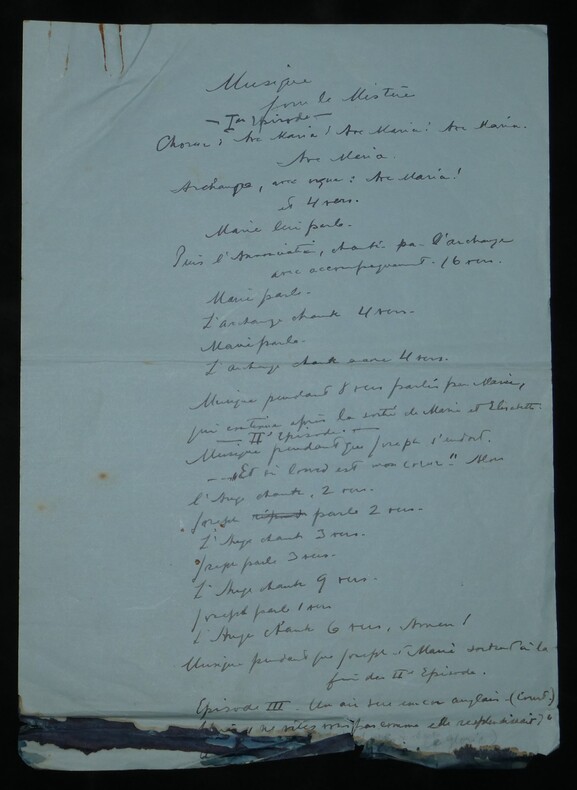 Musique
pour le Mistère
— Ier Episode —
Choeur: Ave Maria! Ave Maria! Ave Maria.
Ave Maria.
Archange, avec orgue: Ave Maria!
et 4 vers.
Marie lui parle.
Puis l'Annonciation, chantée par l'archange
avec accompagnement. 16 vers.
Marie parle.
L'archange chante 4 vers.
Marie parle.
L'archange chante encore 4 vers.
Musique pendant 8 vers parlés par Marie,
qui continue après la sortie de Marie et Elisabeth.
— IIe Episode. —
Musique pendant que Joseph s'endort.
— "Et si lourd est mon coeur". Alors
l'Ange chante, 2 vers.
Joseph répond parle 2 vers.
L'Ange chante 3 vers.
Joseph parle 3 vers.
L'Ange chante 9 vers.
Joseph parle 1 vers
L'Ange chante 6 vers, Amen!
Musique pendant que Joseph et Marie sortent à la
fin du IIe Episode.
Episode III. Un air sur encor anglais. (Court.)
ne comme elle resplendissait)